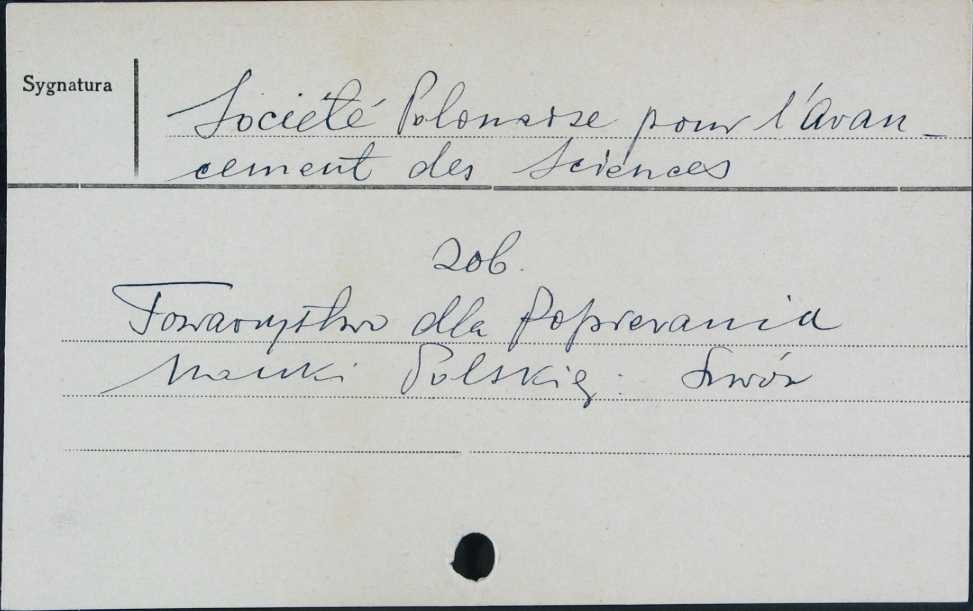 Sygnatura
Société Polonaise pour l'Avan-
cement des Sciences
zob.
Towarzystwo dla Popierania
Nauki Polskiej. Lwów